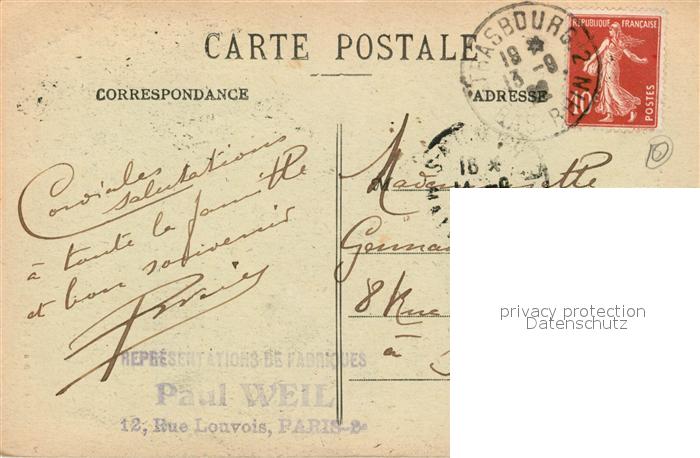 CARTE POSTALE
CORRESPONDANCE
ADRESSE
STRASBOURG
RHIN
RÉPUBLIQUE FRANÇAISE
10
POSTES
Cordiales
salutations
à toute la famille
et bon souvenir
8 Rue
à
REPRÉSENTATIONS DE FABRIQUES
Paul WEIL
12, Rue Louvois, PARIS-2e
privacy protection
Datenschutz